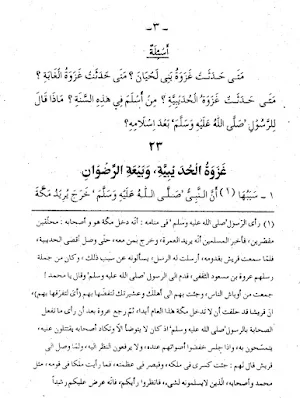 - ٣ -
أسئلة
متى حدثت غزوة بنى لحيان ؟ متى حدثت غزوة الغابة ؟
متى حدثت غزوة الحديبية ؟ من أسلم في هذه السنة ؟ ماذا قال
للرسول "صلى الله عليه وسلم" بعد إسلامه ؟
٢٣
غزوة الحديبية، وبيعة الرضوان
١ - سببها (١) أن النبى "صلى الله عليه وسلم" خرج يريد مكة
(١) رأى الرسول "صلى الله عليه وسلم" فى منامه : أنه دخل مكة هو و أصحابه : محلقين
مقصرين، فأخبر المسلمين أنه يريد العمرة، وخرج بمن معه، حتى وصل أقصى الحديبية،
فلما سمعت قريش بقدومه، أرسلت له الرسل، يسألونه عن سبب ذلك، وكان من جملة
رسلهم عروة بن مسعود الثقفى، قدم الى الرسول "صلى الله عليه وسلم" وقال (يا محمد !
جمعت من أوباش الناس، وجئت بهم الى أهلك وعشيرتك لتفضها بهم (أى لتفرقها بهم)،
ان قريشا قد حلفت أن لا تدخل مكة هذا العام أبدا، ثم رجع عروة بعد أن رأى ما تفعل
الصحابة بالرسول "صلى الله عليه وسلم" اذ كان لا يتوضأ الا وتكاد أصحابه يقتتلون عليه،
يتمسحون به، واذا جلس خفضوا أصواتهم عنده، ولا يرفعون النظر اليه، ولما وصل الى
قريش قال لهم : جئت كسرى فى ملكه، وقيصر فى عظمته، فما رأيت ملكا فى قومه، مثل
محمد وأصحابه، الذين لايسلمونه لشىء، فانظروا رأيكم، فأنه عرض عليكم رشدا